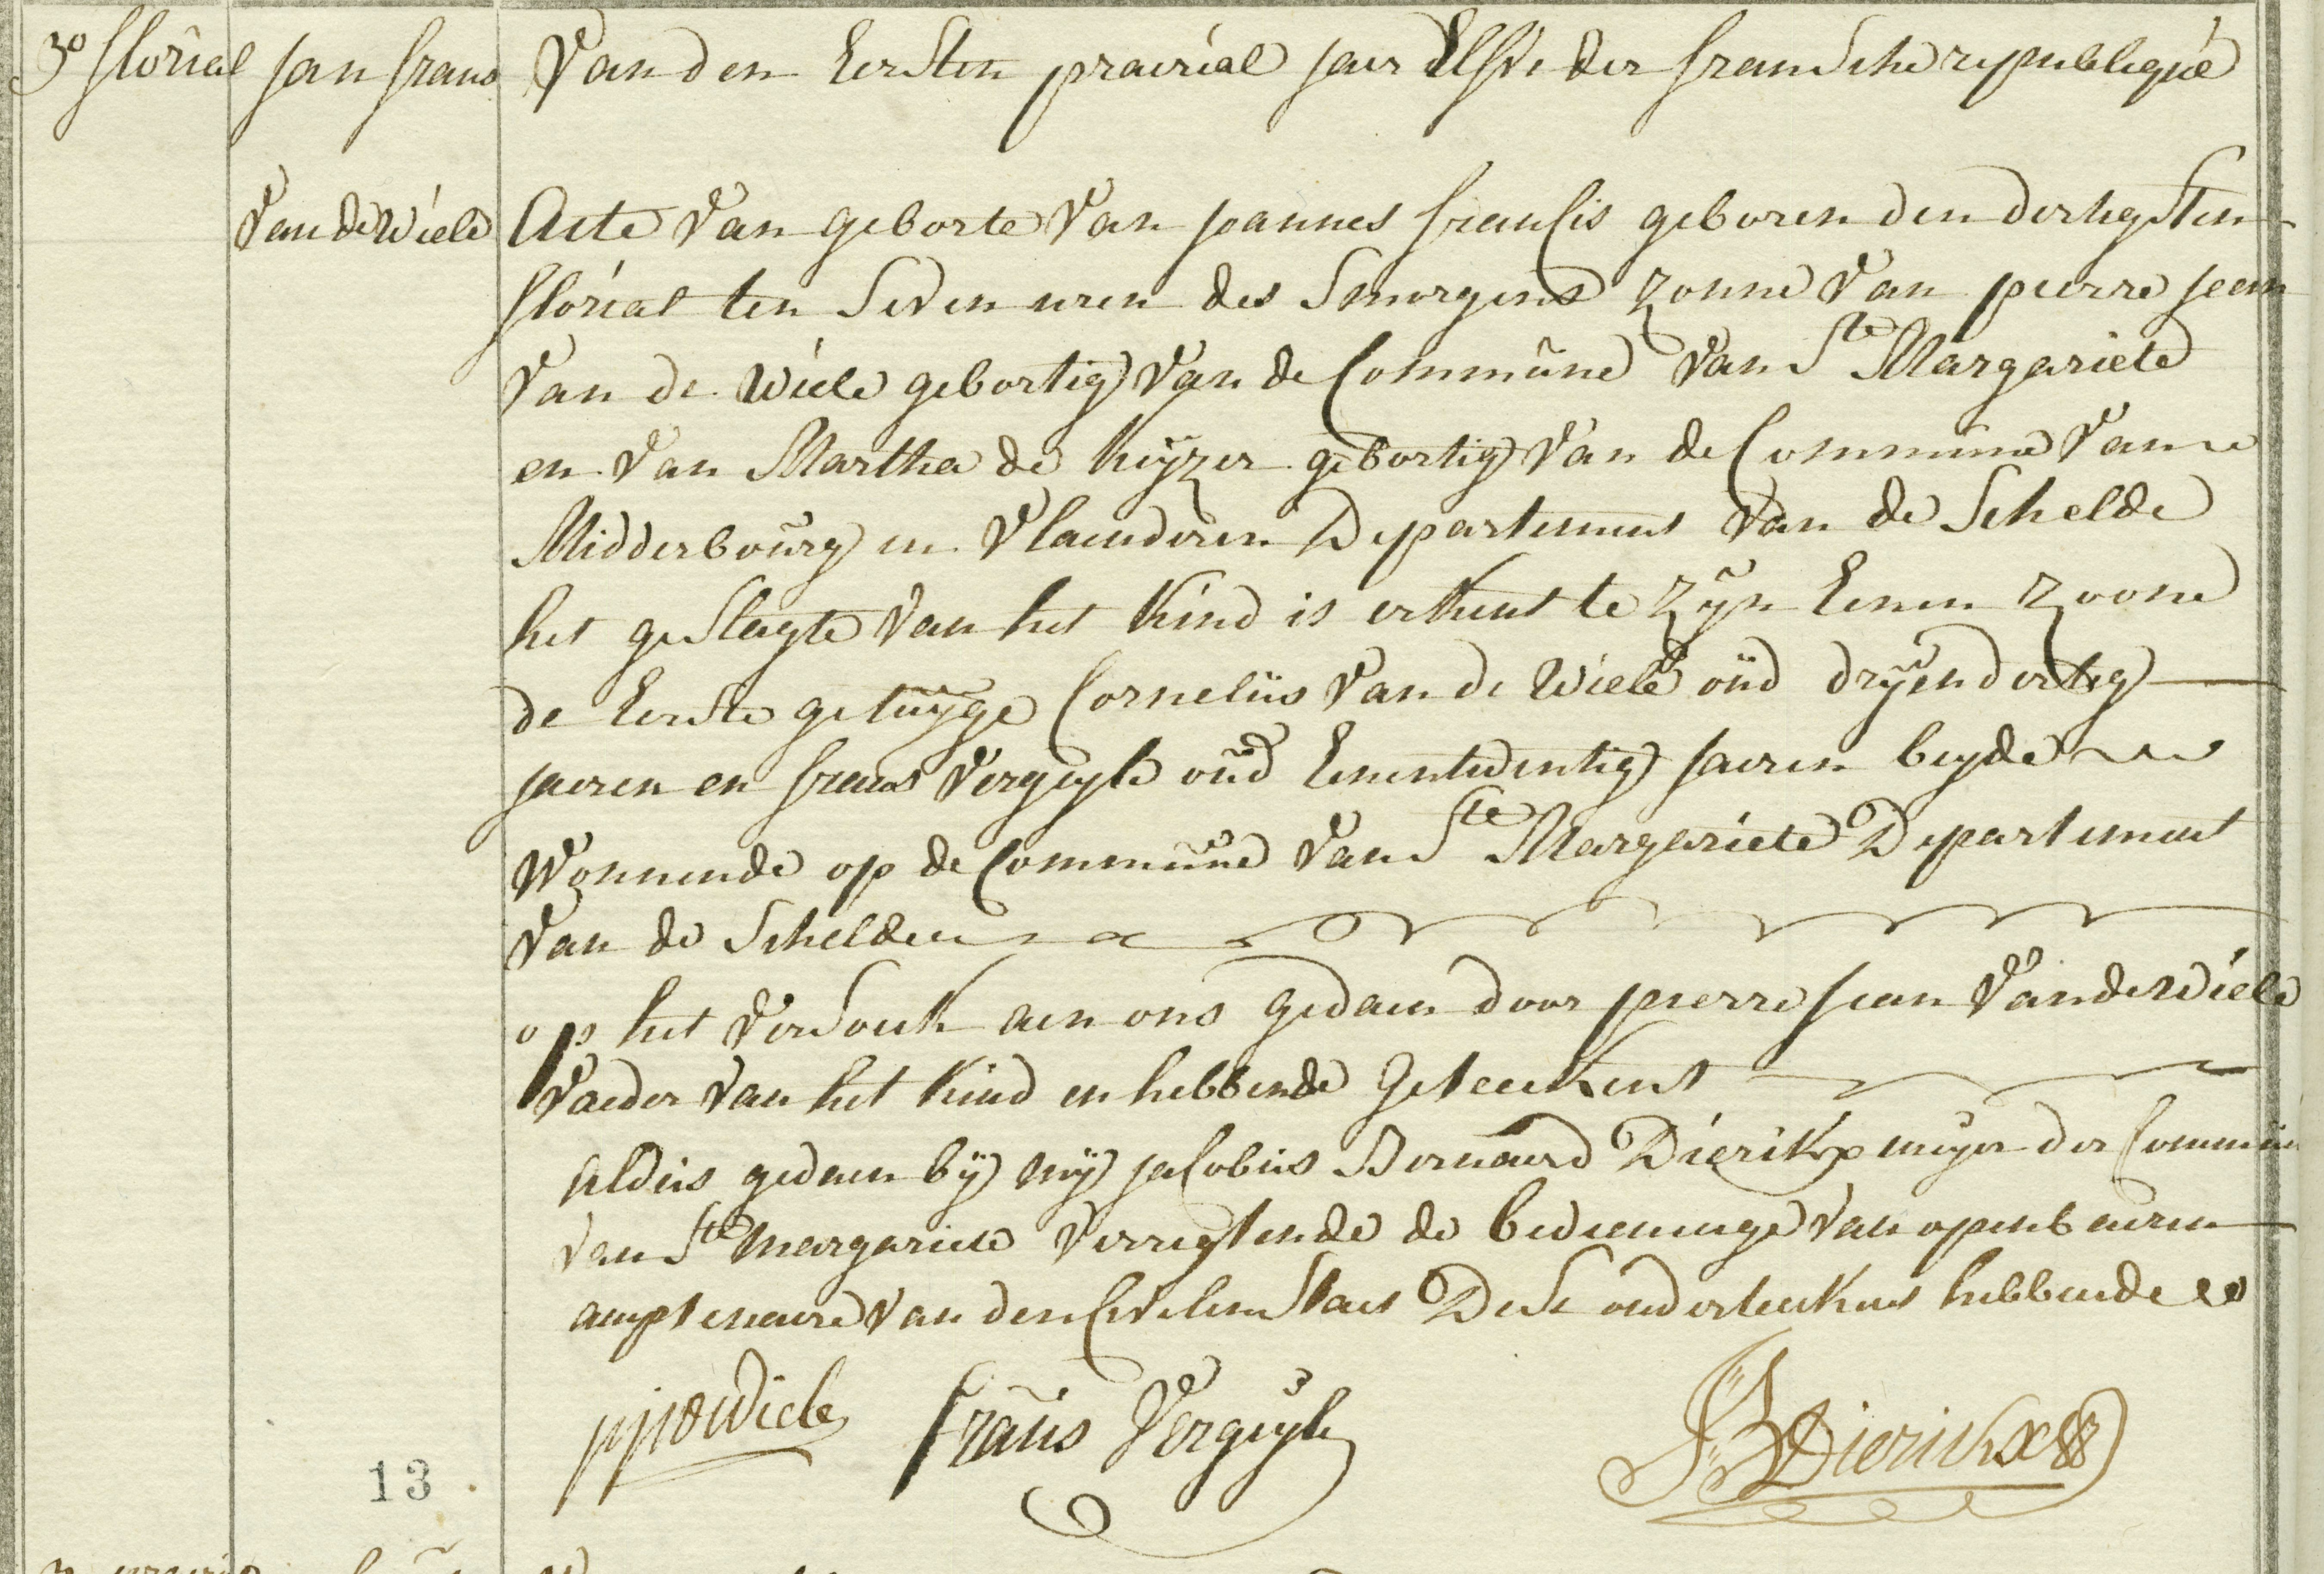 30 florial jan frans Van den Eersten prairial jaer Elfve der fransche republiqué
Van de Wiele Acte Van geborte Van joannes fransis geboren den dertigsten
florial ten seven uren des smorgens zonne Van pierre jean
Van de Wiele gebortig Van de Commune Van Ste Margariete
en Van Martha de Keyzer gebortig Van de Commune Van
Midderbourg in Vlaenderen Departement Van de Schelde
het geslagte Van het Kind is erkent te zyn Eenen zoone
de Eerste getuyge Cornelius Van de Wiele oud dryendertig
jaeren en frans Verguyle oud Eenentwentig jaeren beyde
Wonnende op de Commune Van Ste Margariete Departement
Van de Schelden
op het Versouk aen ons gedaen door pierre jean Van de Wiele
Vaeder Van het Kind en hebbende Geteekent
Aldus gedaen by my jacobus Bernaerd Dierikx meyer der Commune
van Ste Margariete Verrigtende de bedieninge Van openbaeren
amptenaere Van den Civilen Staet Dese onderteekent hebbende
pjvdWiele frans Verguyle JBDierickx
13